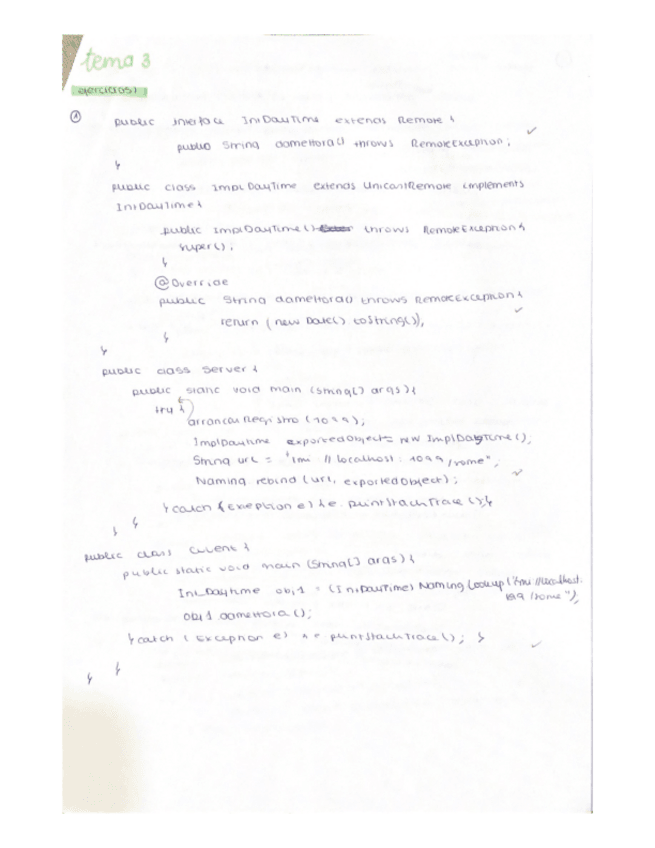 tema 3
ejercicios)
① public interface IntDayTime extends Remote {
public String dameHora() throws RemoteException;
}
public class ImplDayTime extends UnicastRemote implements
IntDayTime {
public ImplDayTime() throws RemoteException {
super();
}
@Override
public String dameHora() throws RemoteException {
return (new Date() toString());
}
}
public class Server {
public static void main (String[] args) {
try {
arrancarRegistro (1099);
ImplDaytime exportedObject = new ImplDayTime();
String url = "rmi // localhost : 1099 /rome";
Naming rebind (url, exportedObject);
} catch (exception e) { e. printStackTrace (); }
} }
public class Client {
public static void main (String[] args) {
Int_Daytime obj1 = (IntDayTime) Naming Lookup ("rmi //localhost:
1099 /rome")
obj1 dameHora ();
} catch ( Exception e) { e printStackTrace(); }
} }